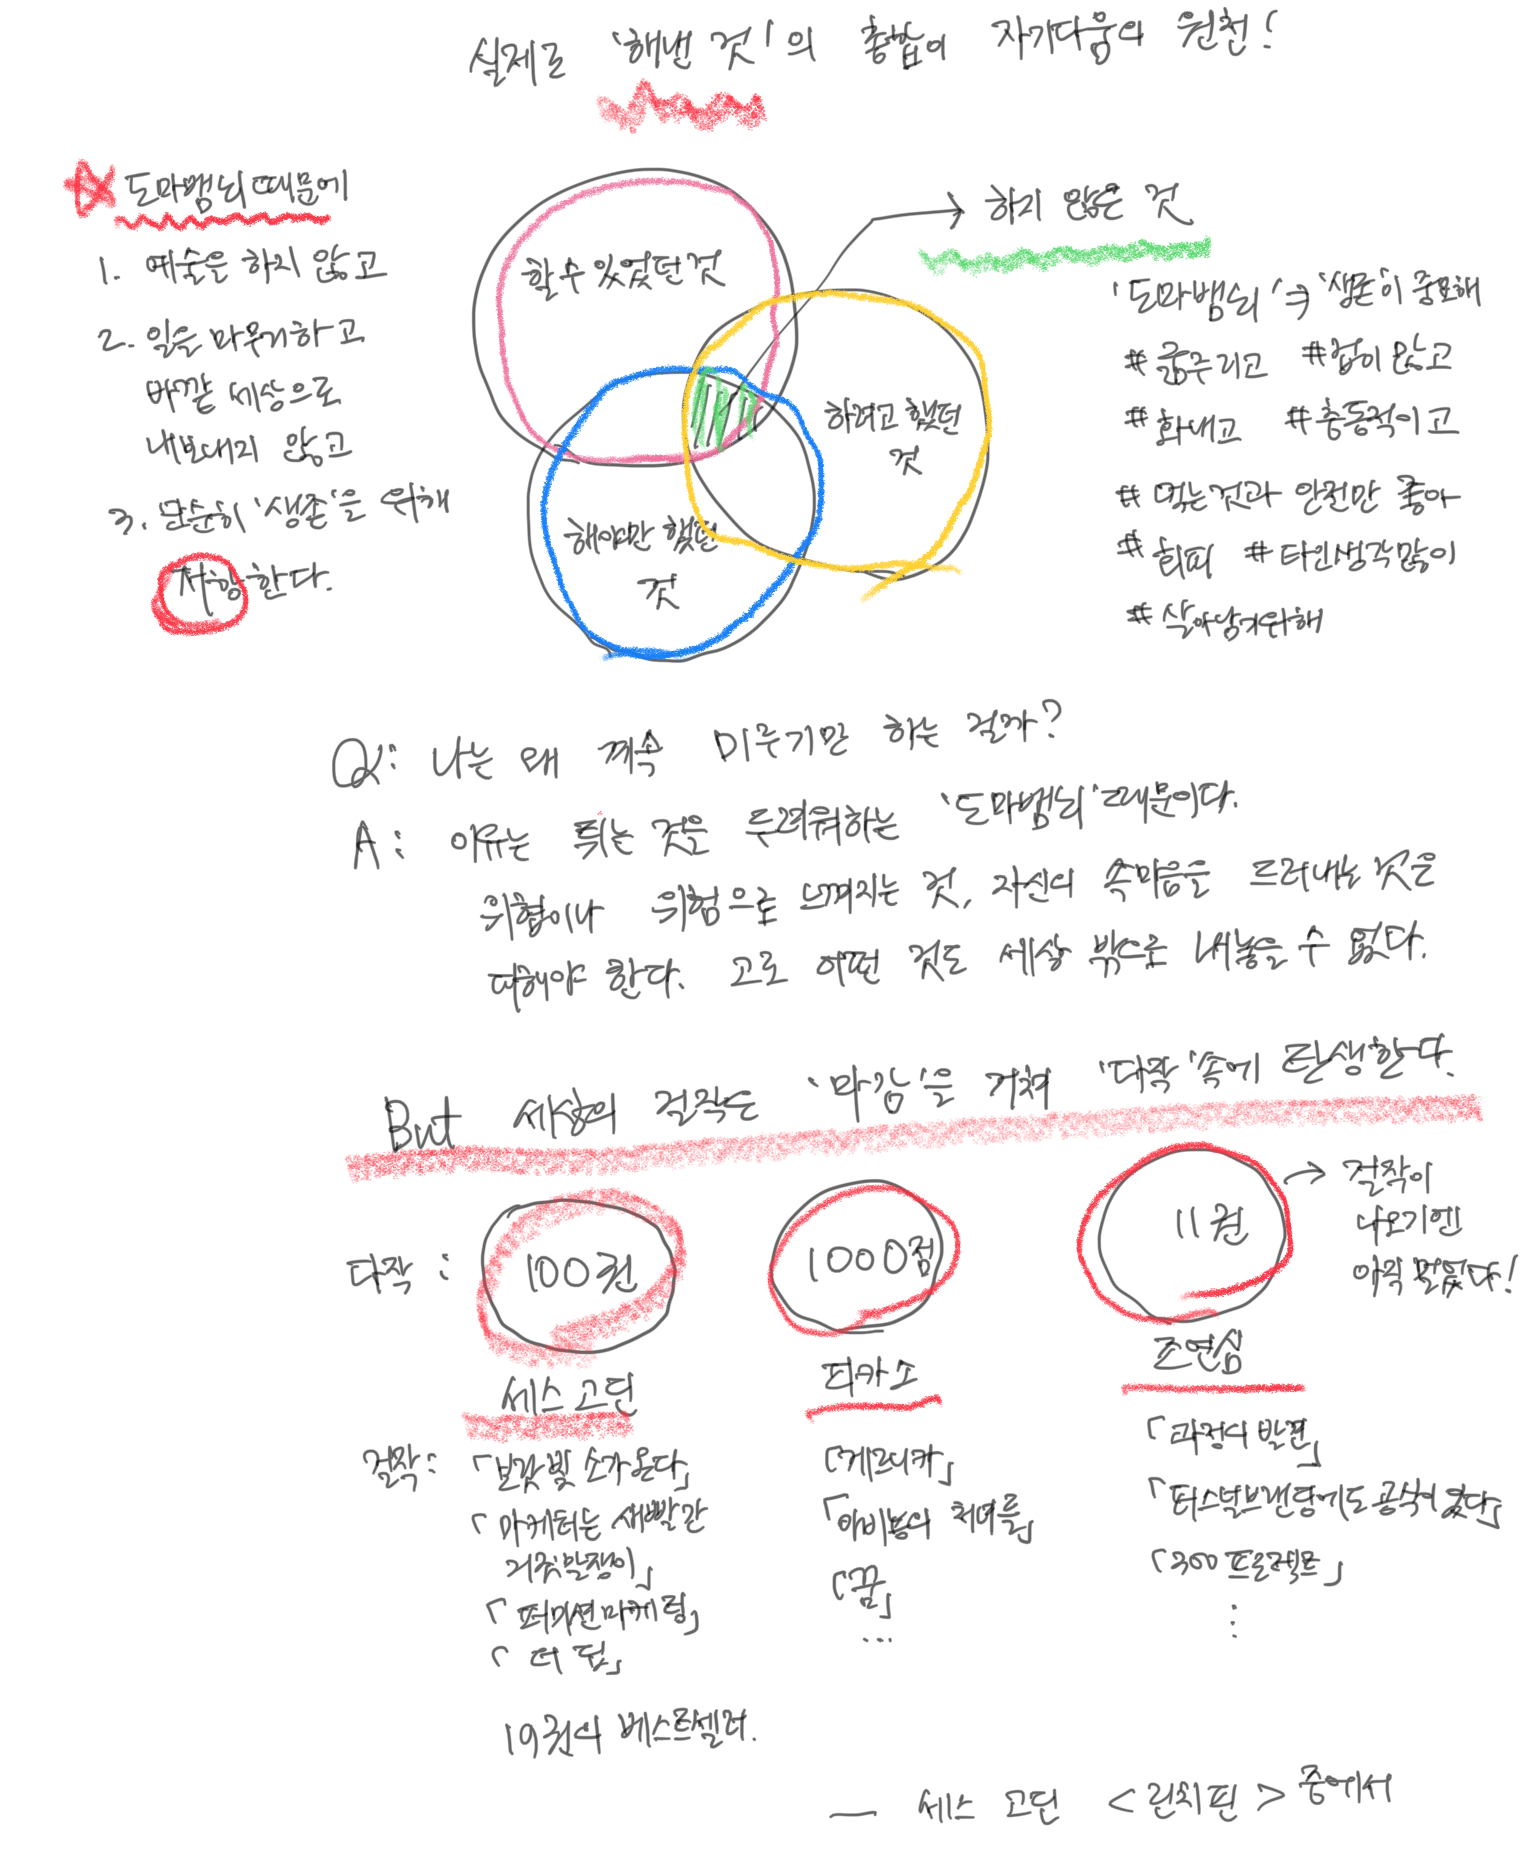 실제로 '해낸 것'의 총합이 자기다움의 원천!
도마뱀뇌 때문에
1. 예술은 하지 않고
2. 일을 마무리하고
바깥 세상으로
내보내지 않고
3. 단순히 '생존'을 위해
저항한다.
할 수 있었던 것
하려고 했던
것
해야만 했던
것
하지 않은 것
'도마뱀뇌' → '생존'이 중요해
#굶주리고 #겁이 많고
#화내고 #충동적이고
#먹는것과 안전만 좋아
#회피 #타인생각많이
#살아남기위해
Q: 나는 왜 계속 미루기만 하는 걸까?
A: 이유는 튀는 것을 두려워하는 '도마뱀뇌' 때문이다.
위협이나 위험으로 느껴지는 것, 자신의 속마음을 드러내는 것은
피해야 한다. 고로 어떤 것도 세상 밖으로 내놓을 수 없다.
But 세상의 걸작은 '마감'을 거쳐 '다작'속에 탄생한다.
다작: 100권 1000점 11권 → 걸작이
나오기엔
아직 멀었다!
세스 고딘 피카소 조연심
걸작: 「보랏빛 소가 온다」
「마케터는 새빨간
거짓말쟁이」
「퍼미션마케팅」
「더 딥」
19권의 베스트셀러.
「게르니카」
「아비뇽의 처녀들」
「꿈」
...
「과정의 발견」
「퍼스널브랜딩에도 공식이 있다」
「300 프로젝트」
⋮
— 세스 고딘 <린치핀> 중에서